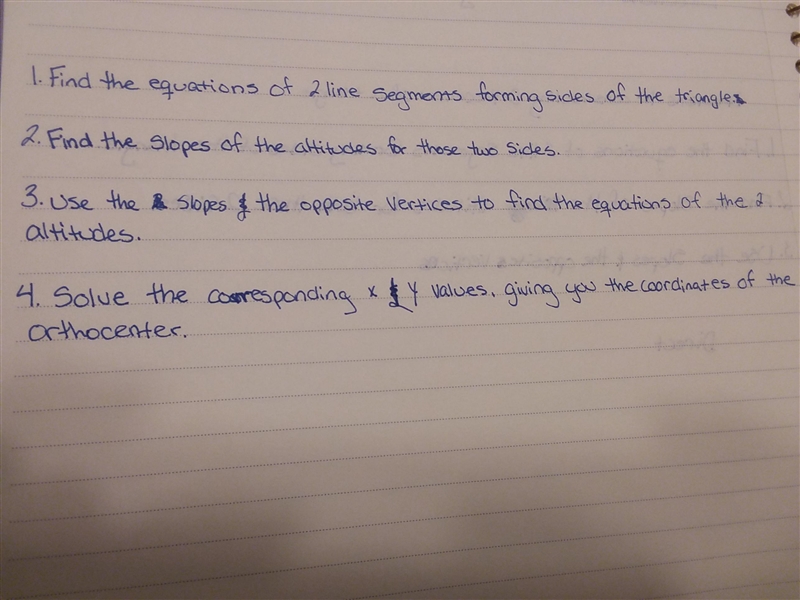 1. Find the equations of 2 line segments forming sides of the triangle.
2. Find the slopes of the altitudes for those two sides.
3. Use the slopes & the opposite vertices to find the equations of the 2
altitudes.
4. Solve the corresponding x & y values, giving you the coordinates of the
orthocenter.